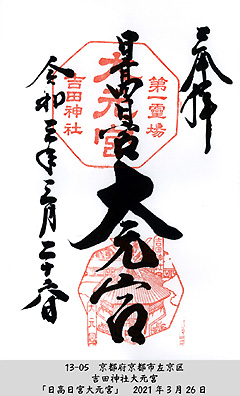 奉拝
日高日宮
大元宮
令和三年三月二十六日
第一霊場
大元宮
吉田神社
13-05 京都府京都市左京区
吉田神社大元宮
「日高日宮大元宮」 2021年3月26日